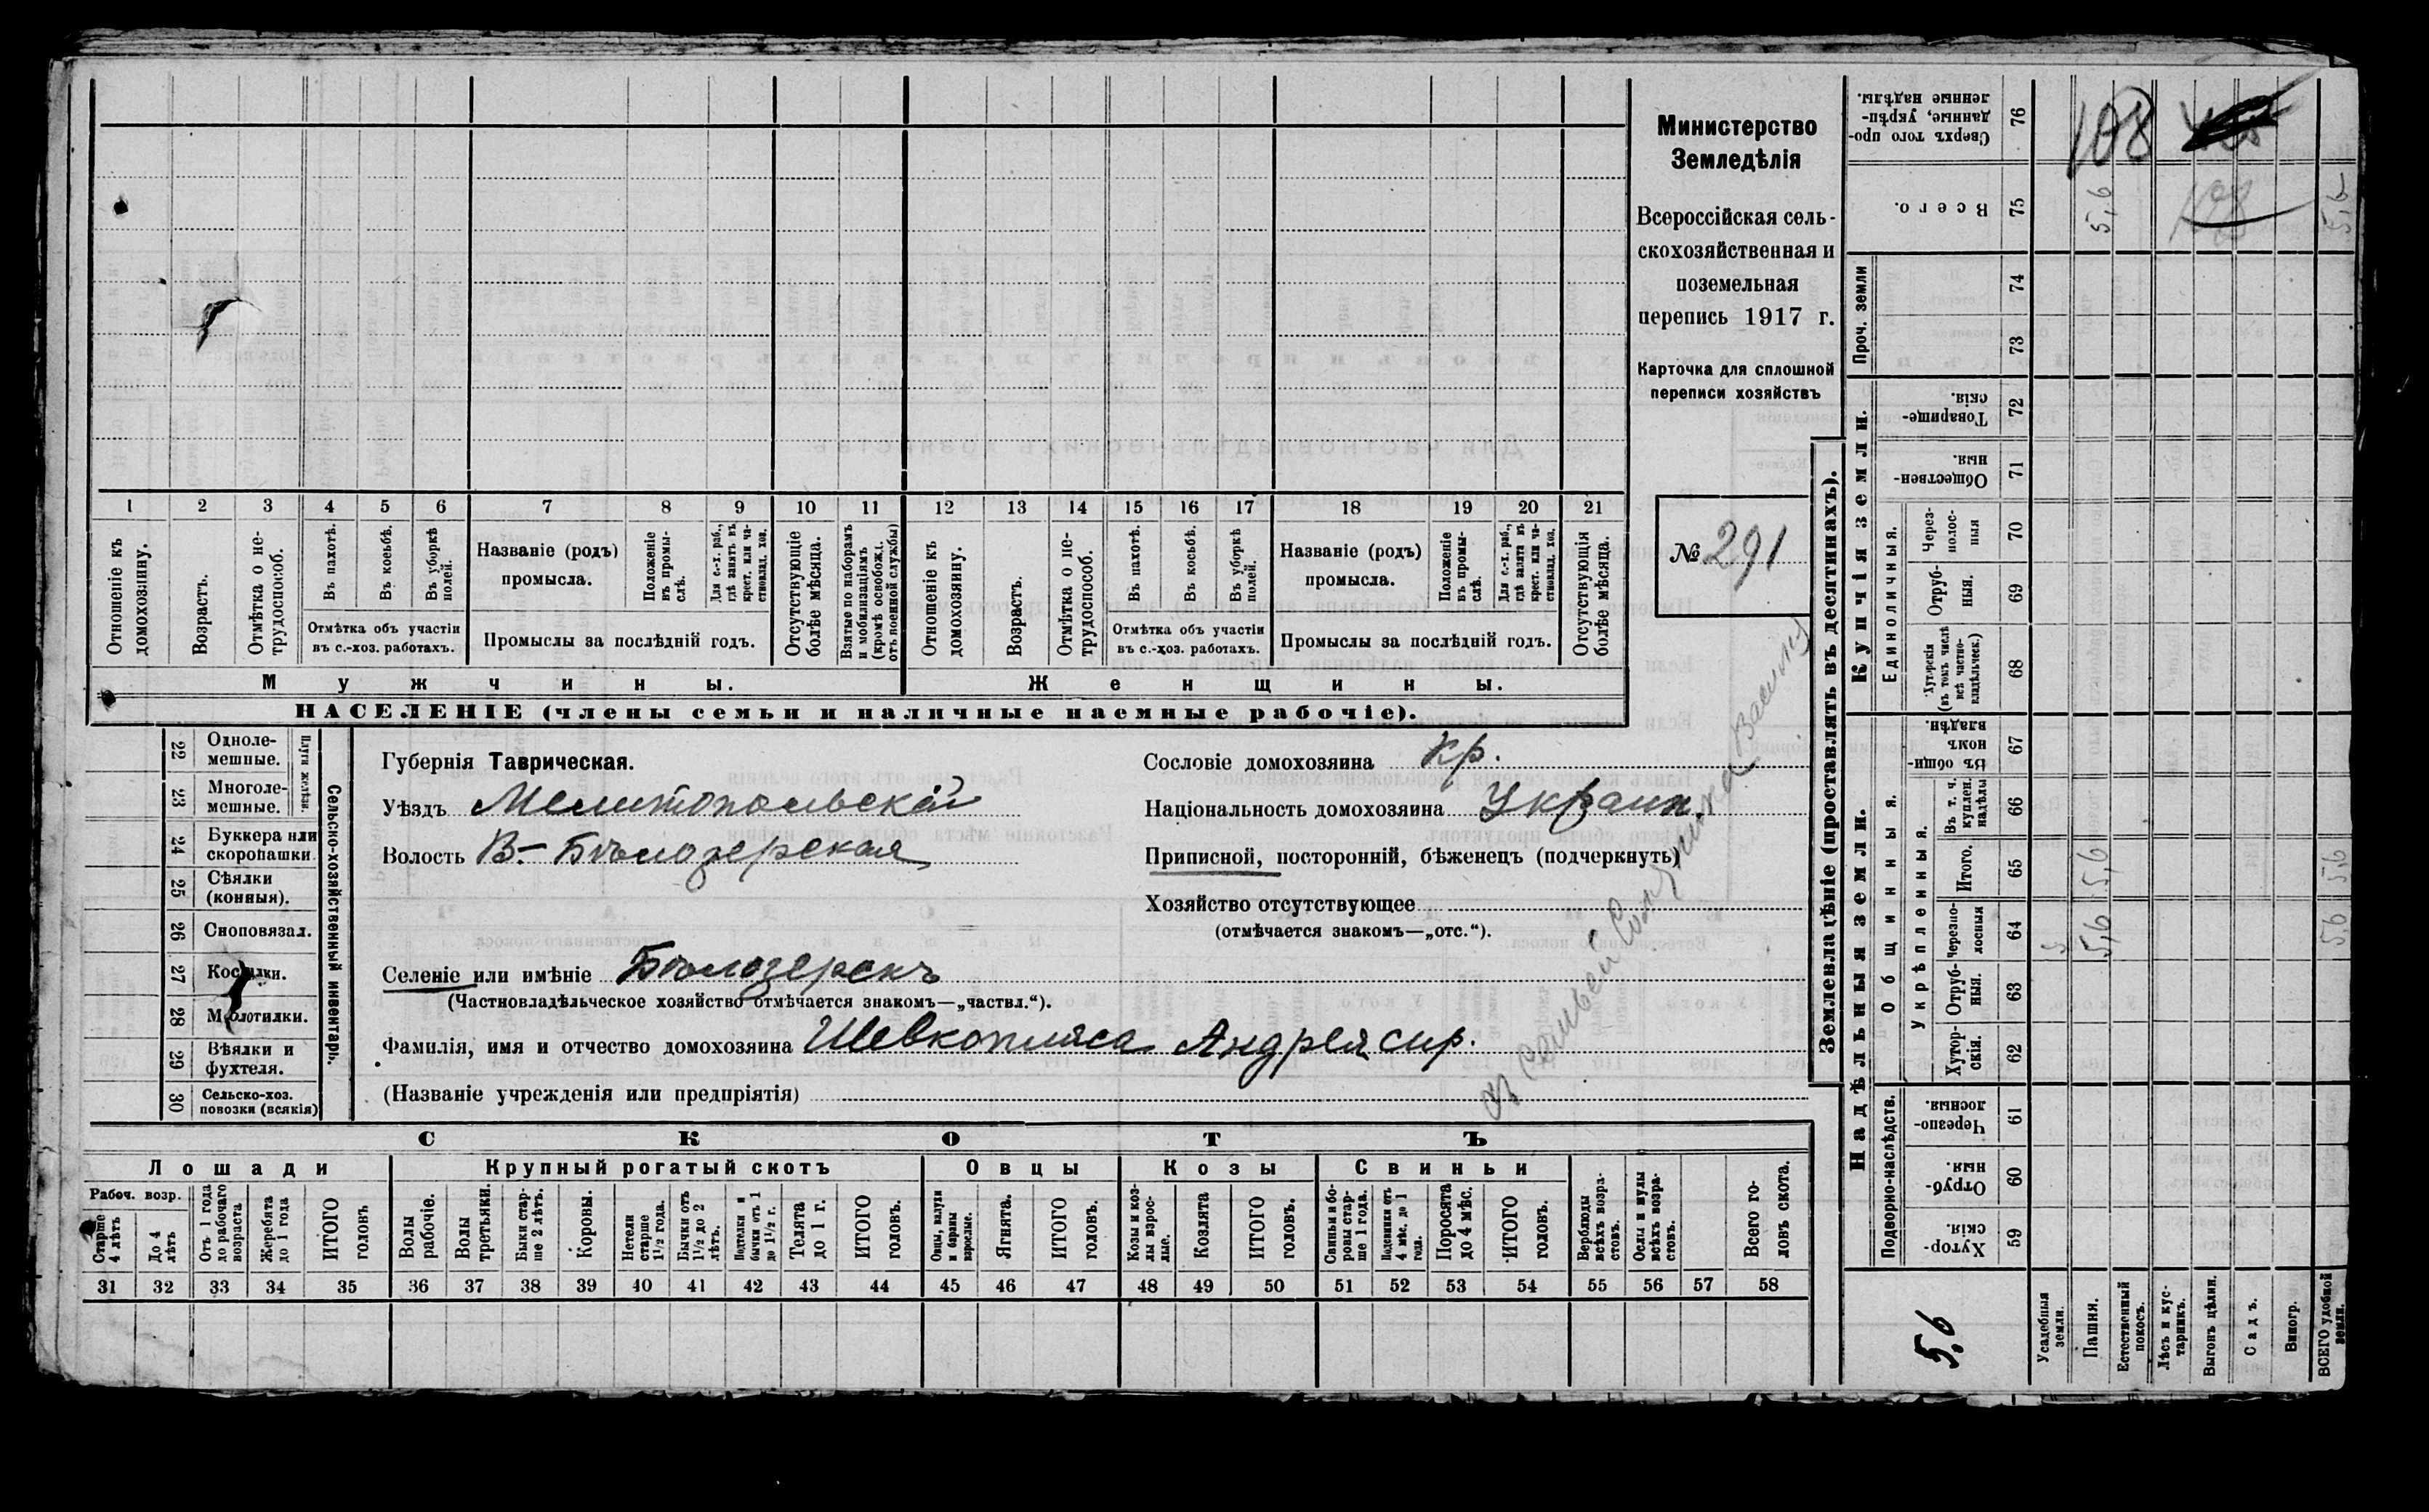 1 2 3 4 5 6 7 8 9 10 11 12 13 14 15 16 17 18 19 20 21
Отношеніе къ домохозяину.
Возрастъ.
Отмѣтка о не-
трудоспособ.
Въ пахотѣ.
Въ косьбѣ.
Въ уборкѣ
полей.
Отмѣтка объ участіи
въ с.-хоз. работахъ.
Названіе (родъ)
промысла.
Положеніе
въ промы-
слѣ.
Для с.-х. раб.,
гдѣ занятъ въ
крест. или ча-
стновлад. хоз.
Промыслы за послѣдній годъ.
Отсутствующіе
болѣе мѣсяца.
Взятые по наборамъ
и мобилизаціямъ
(кромѣ освобожд.
отъ военной службы)
Отношеніе къ
домохозяину.
Возрастъ.
Отмѣтка о не-
трудоспособ.
Въ пахотѣ.
Въ косьбѣ.
Въ уборкѣ
полей.
Отмѣтка объ участіи
въ с.-хоз. работахъ.
Названіе (родъ)
промысла.
Положеніе
въ промы-
слѣ.
Для с.-х. раб.,
гдѣ занята въ
крест. или ча-
стновлад. хоз.
Промыслы за послѣдній годъ.
Отсутствующія
болѣе мѣсяца.
Мужчины.
Женщины.
НАСЕЛЕНІЕ (члены семьи и наличные наемные рабочіе).
Министерство
Земледѣлія
Всероссійская сель-
скохозяйственная и
поземельная
перепись 1917 г.
Карточка для сплошной
переписи хозяйствъ
№ 291
22 Одноле-
мешные.
23 Многоле-
мешные.
Плуги желѣзн.
24 Буккера или
скоропашки
25 Сѣялки
(конныя).
26 Сноповязал.
27 Косилки.
28 Молотилки.
29 Вѣялки и
фухтеля.
30 Сельско-хоз.
повозки (всякія)
Сельско-хозяйственный инвентарь.
Губернія Таврическая.
Уѣздъ Мелитопольскій
Волость В-Бѣлозерская
Сословіе домохозяина кр.
Національность домохозяина Украин.
Приписной, посторонній, бѣженецъ (подчеркнуть)
Хозяйство отсутствующее
(отмѣчается знакомъ—„отс.“).
Селеніе или имѣніе Бѣлозерскъ
(Частновладѣльческое хозяйство отмѣчается знакомъ—„частвл.“).
Фамилія, имя и отчество домохозяина Шевкопляса Андрея сир.
(Названіе учрежденія или предпріятія)
СКОТЪ
Лошади
Рабоч. возр.
Старше
4 лѣтъ
До 4
лѣтъ
Отъ 1 года
до рабочаго
возраста
Жеребята
до 1 года
ИТОГО
головъ
Крупный рогатый скотъ
Волы
рабочіе.
Волы
третьяки.
Быки стар-
ше 2 лѣтъ.
Коровы.
Нетели
старше
1½ года.
Бычки отъ
1½ до 2
лѣтъ.
Подтелки и
бычки отъ 1
до 1½ г.
Телята
до 1 г.
ИТОГО
головъ.
Овцы
Овцы, валухи
и бараны
взрослые.
Ягнята.
ИТОГО
головъ.
Козы
Козы и коз-
лы взрос-
лые.
Козлята
ИТОГО
головъ.
Свиньи
Свиньи и бо-
ровы стар-
ше 1 года.
Подсвинки отъ
4 мѣс. до 1
года.
Поросята
до 4 мѣс.
ИТОГО
головъ.
Верблюды
всѣхъ возра-
стовъ.
Ослы и мулы
всѣхъ возра-
стовъ.
Всего го-
ловъ скота.
31 32 33 34 35 36 37 38 39 40 41 42 43 44 45 46 47 48 49 50 51 52 53 54 55 56 57 58
Землевладѣніе (проставлять въ десятинахъ).
Купчія земли.
Надѣльныя земли.
Сверхъ того про-
данные, укрѣп-
ленные надѣлы.
76
108
Всего.
75
5,6
5,6
Проч. земли
74
73
Товарище-
скія.
72
Обществен-
ныя.
71
Единоличныя.
Через-
полос-
ныя
70
Отруб-
ныя.
69
Хуторскія
(въ томъ числѣ
всѣ частно-
владѣльческ.)
68
Общинныя.
Въ общин-
номъ
владѣн.
67
Укрѣпленныя.
Въ т. ч.
куплен.
надѣлы
66
Итого.
65
5,6
5,6
Черезпо-
лосныя
64
5,6
5,6
Отруб-
ныя.
63
Хутор-
скія.
62
Подворно-наслѣдств.
Черезпо-
лосныя.
61
Отруб-
ныя.
60
Хутор-
скія.
59
5,6
Усадебныя
земли.
Пашня.
Естественный
покосъ.
Лѣсъ и кус-
тарникъ.
Выгонъ цѣлин.
Садъ.
Виногр.
ВСЕГО удобной
земли.